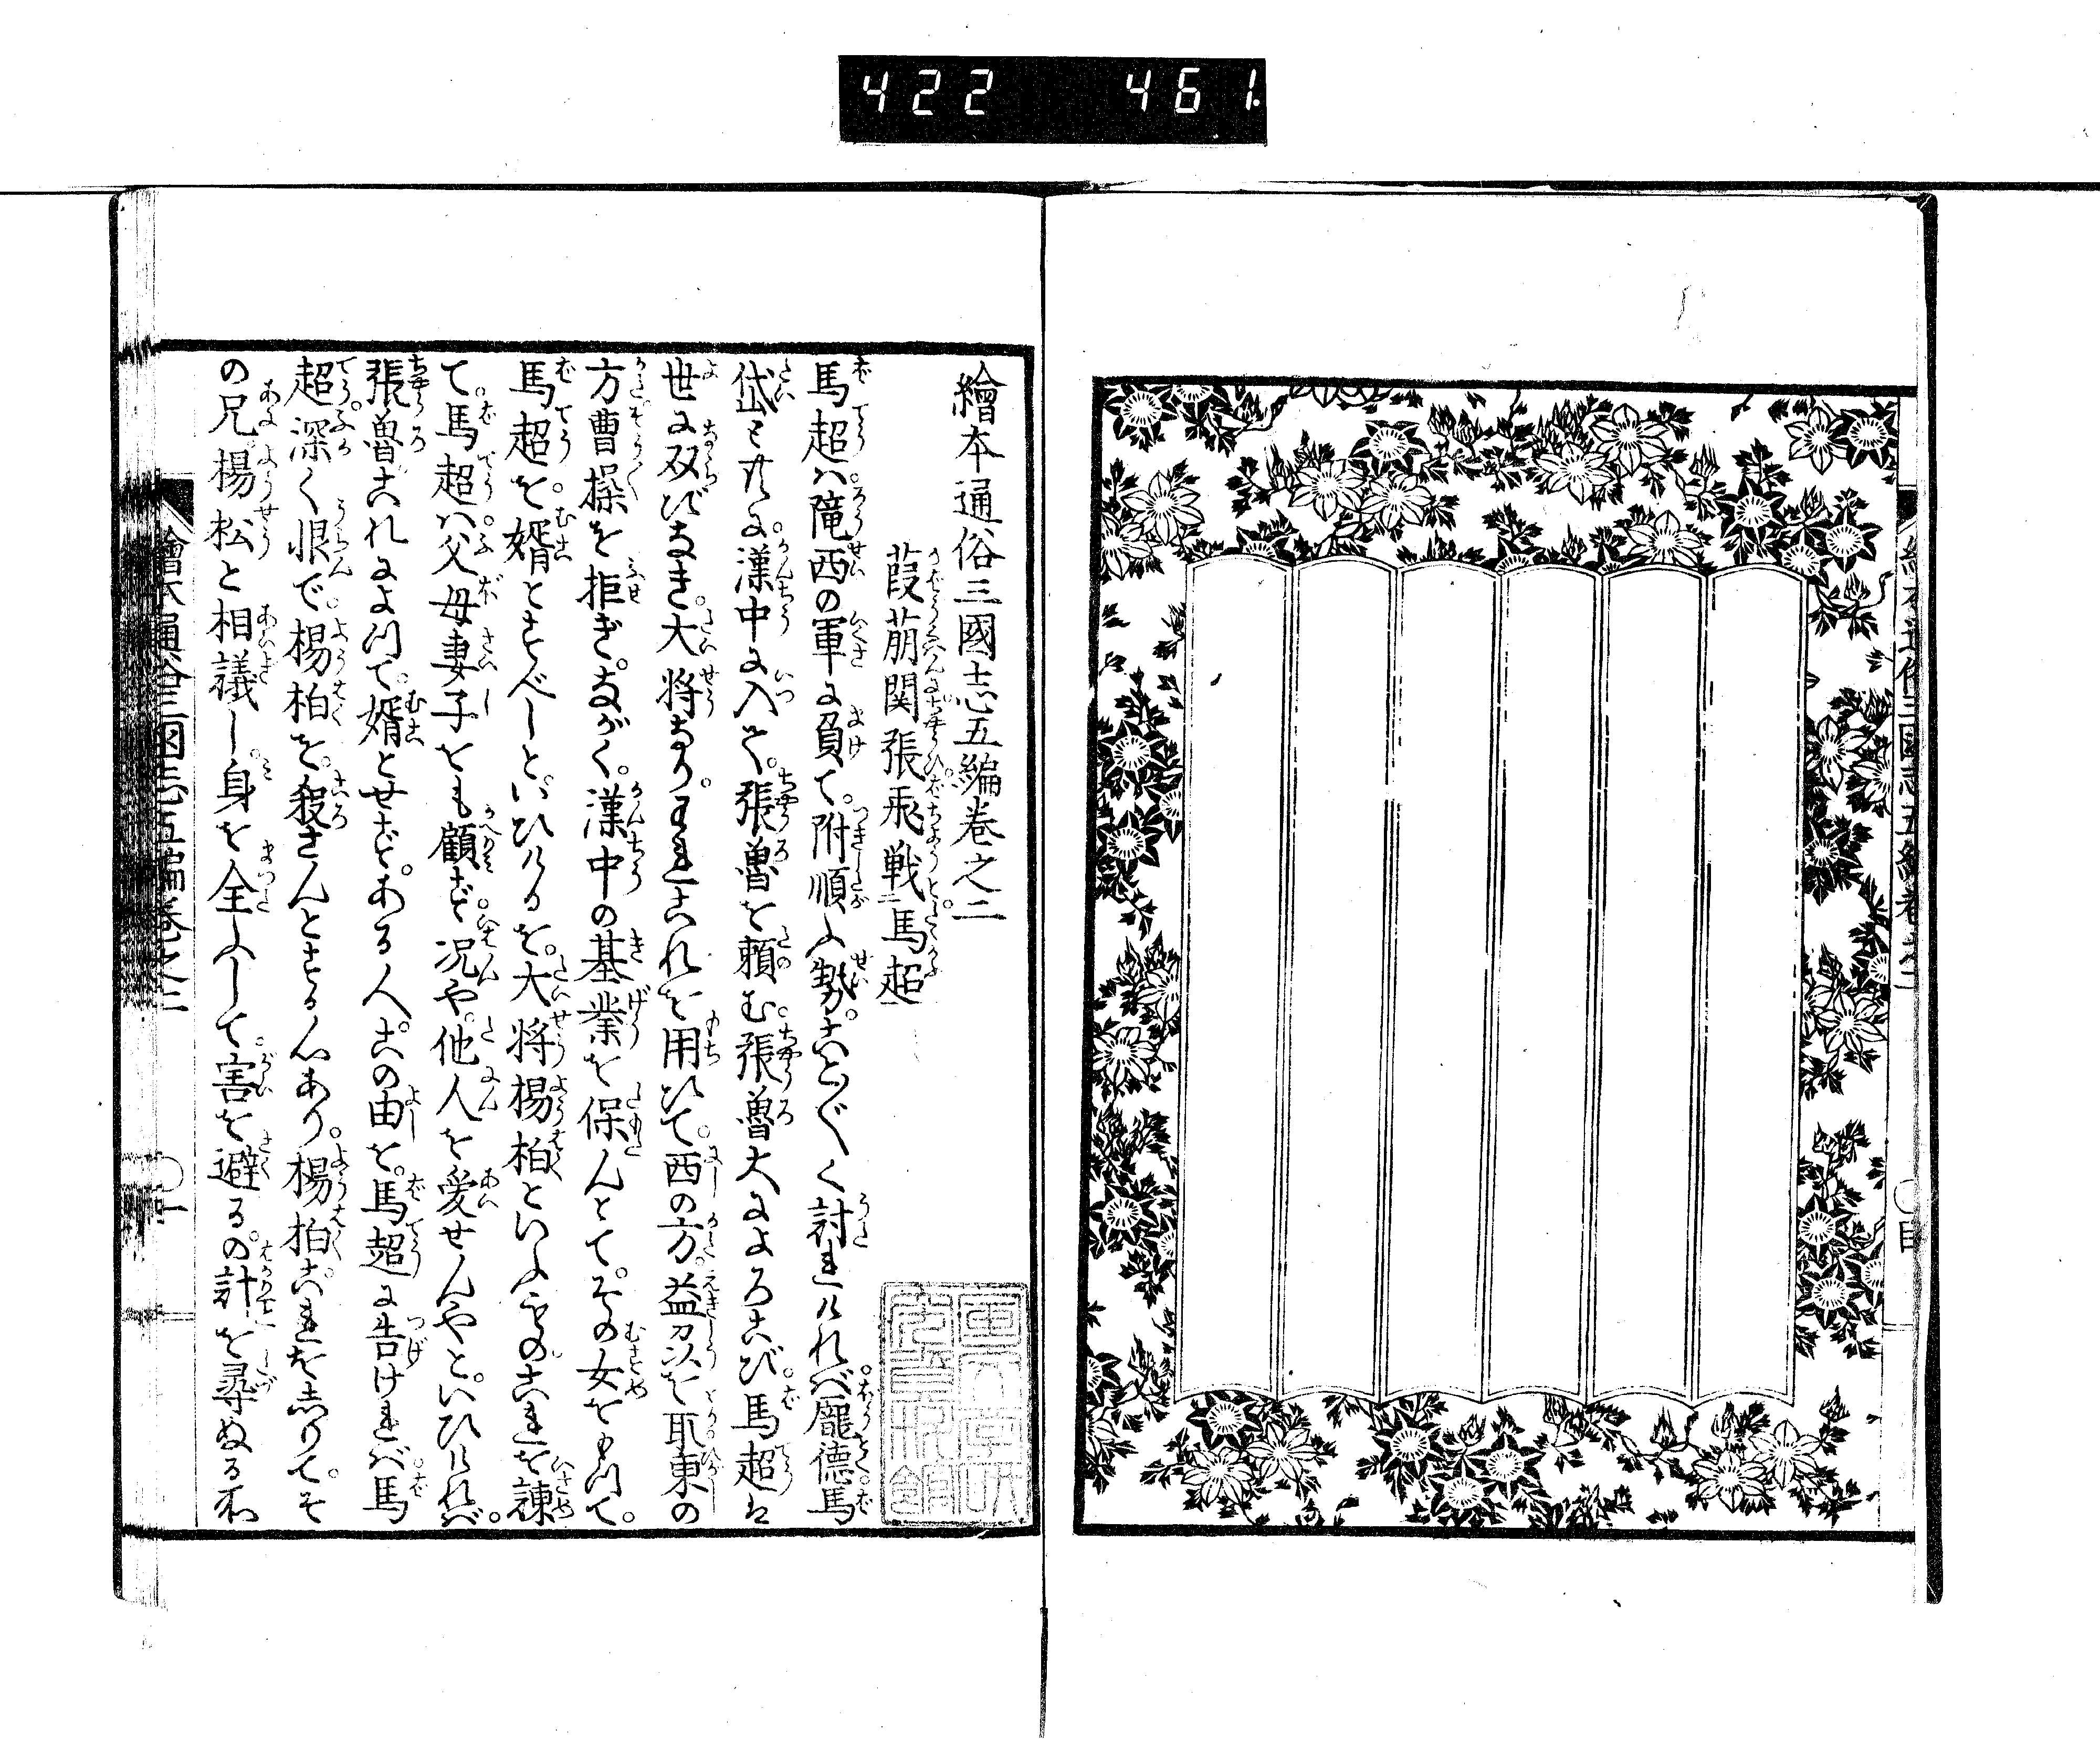 422 461
繪本通俗三國志五編卷之二
葭萌関張飛戦二馬超一
馬超ハ隴西の軍に負て。附順ふ勢。こと〴〵く討れけれバ。龐徳馬
岱ミ共に。漢中に入て。張魯を頼む。張魯大によろこび。馬超は
世に双びなき。大将なり。われこれを用ひて。西の方。益州を取東の
方曹操を拒ぎ。ながく。漢中の基業を保んとて。その女をもつて。
馬超を。婿とすべしと。いひけるを。大将楊柏といふもの。これを諫
て。馬超ハ。父母妻子をも顧ず。况や。他人を愛せんやと。いひけれバ。
張魯これによつて。婿とせず。ある人。この由を。馬超に告けれバ。馬
超。深く恨で。楊柏を。殺さんとする心あり。楊柏。これをしりて。そ
の兄楊松と相議し。身を全ふして。害を避る。の計を尋ぬる折
繪本通俗三國志五編卷之二
〇一